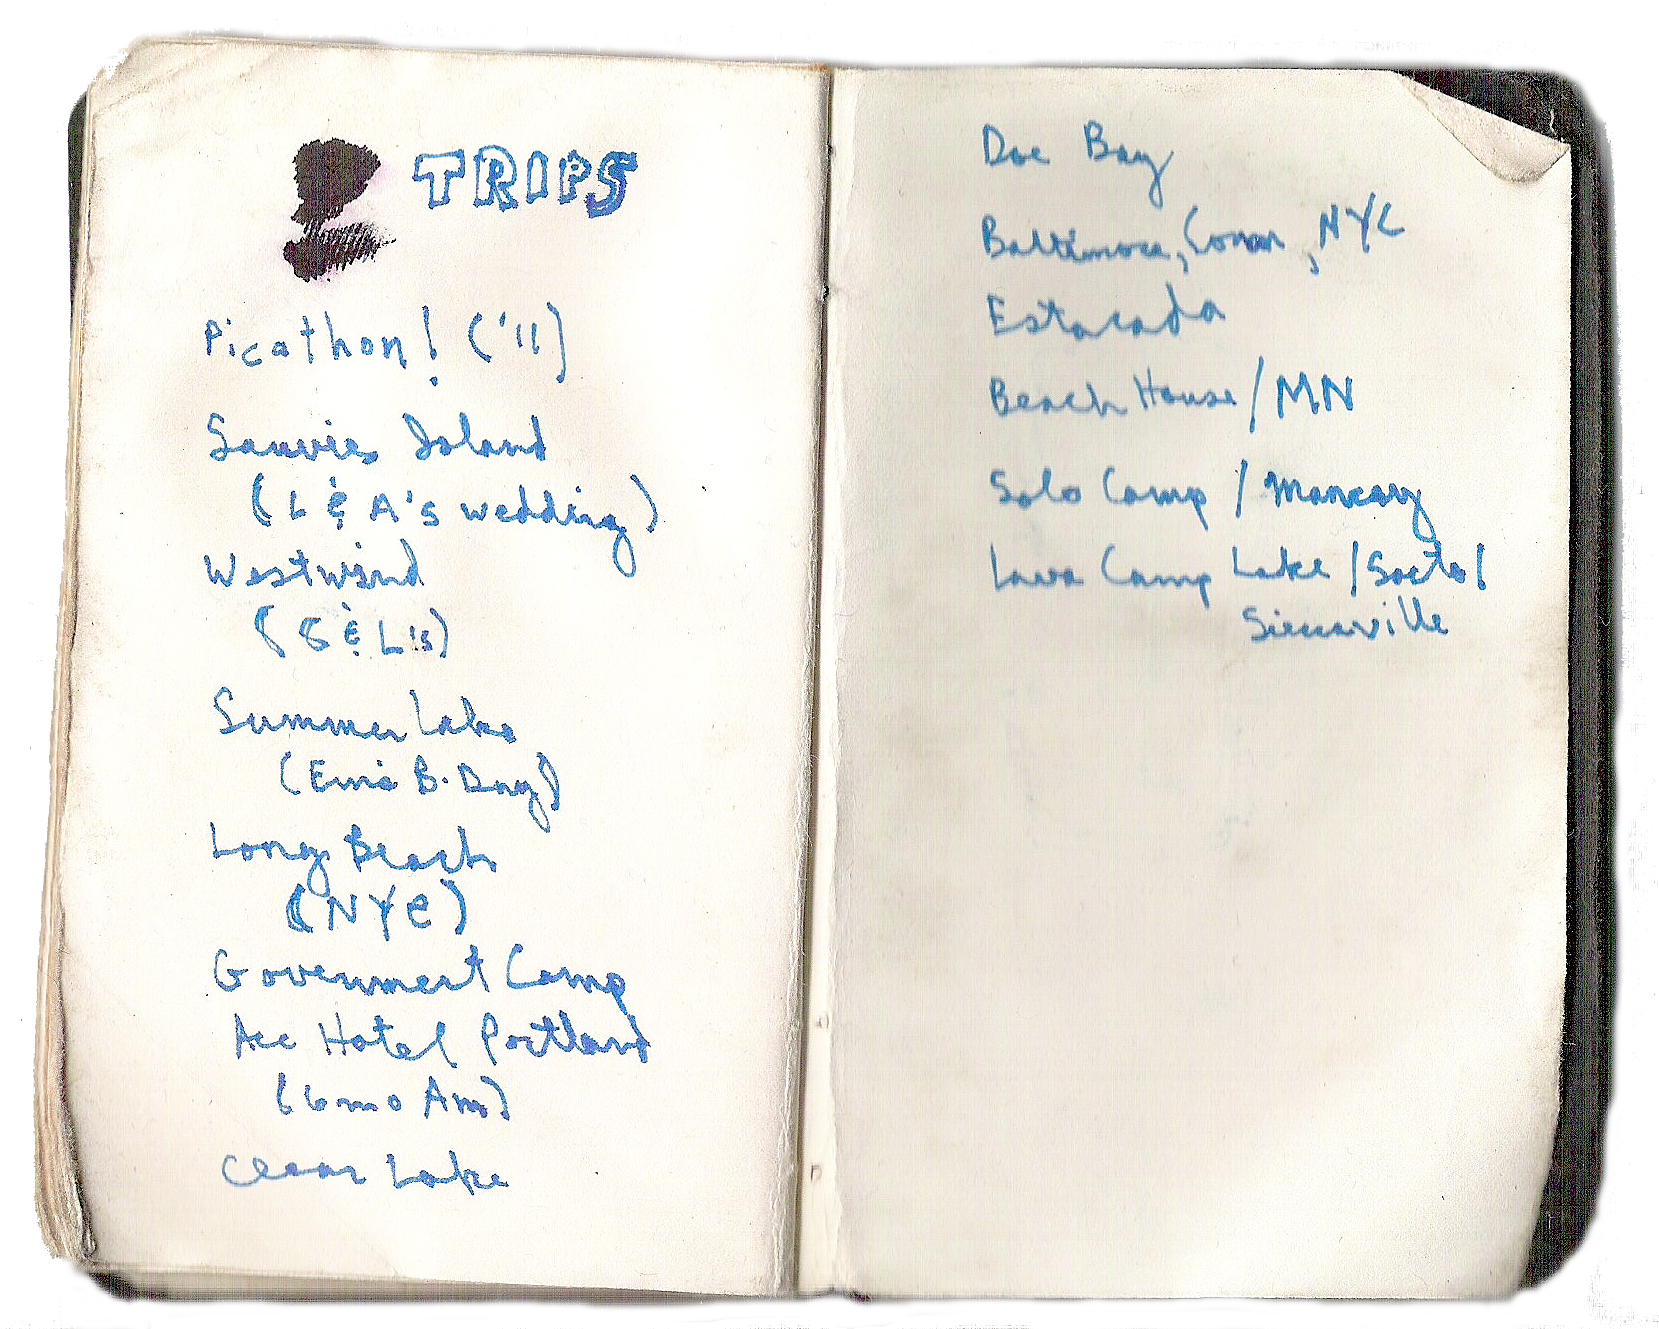 TRIPS
Picathon! ('11)
Sauvies Island
(L & A's wedding)
Westwind
(S & L's)
Summer Lake
(Ernie B. Day)
Long Beach
(NYC)
Government Camp
Ace Hotel Portland
(6 mo Ann)
Clear Lake
Doe Bay
Baltimore, Conn, NYC
Estacada
Beach House / MN
Solo Camp /
Lava Camp Lake / Soctol
Sierraville